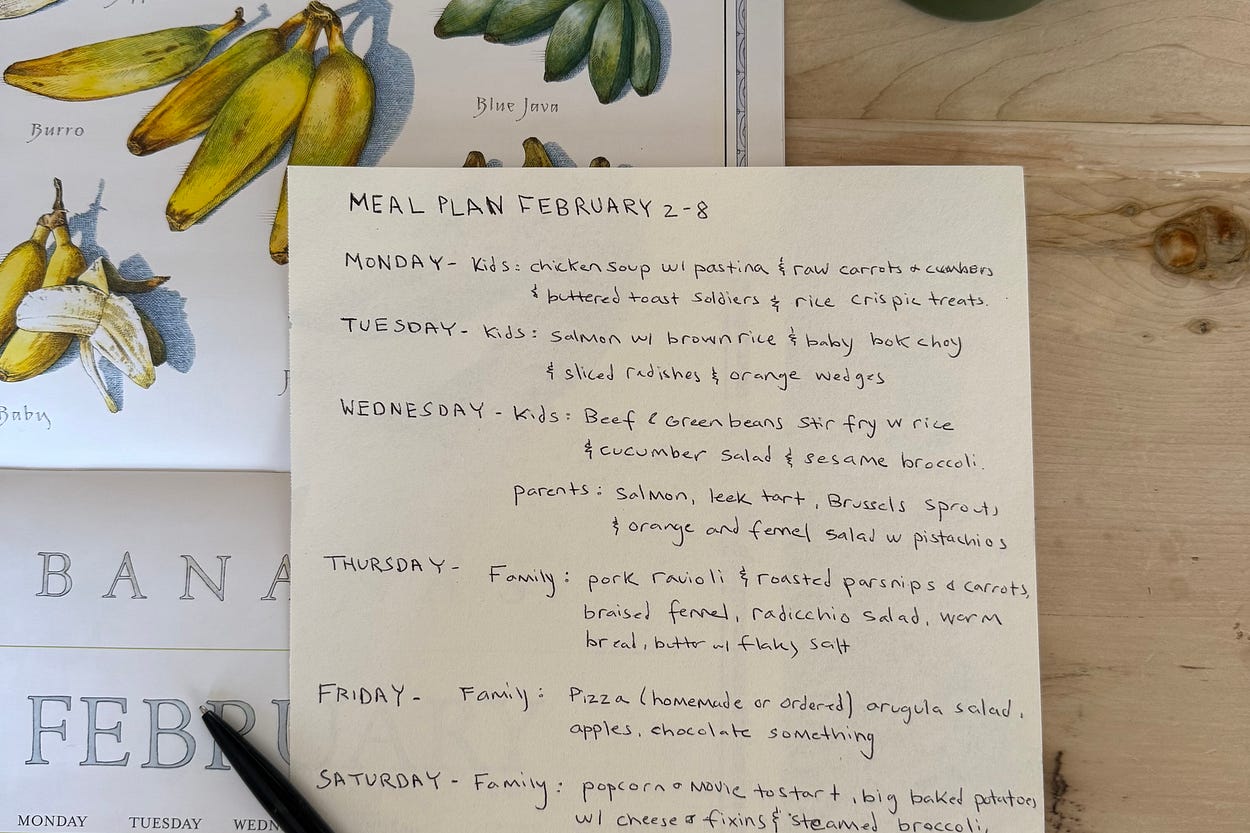 Burro
Blue Java
Baby
BANA
FEBRU
MONDAY TUESDAY WEDN
MEAL PLAN FEBRUARY 2-8
MONDAY - Kids: chicken soup w/ pastina & raw carrots & cumbers
& buttered toast soldiers & rice crispie treats.
TUESDAY - Kids: salmon w/ brown rice & baby bok choy
& sliced radishes & orange wedges
WEDNESDAY - Kids: Beef & Green beans stir fry w rice
& cucumber salad & sesame broccoli.
parents: salmon, leek tart, Brussels sprouts
& orange and fennel salad w pistachios
THURSDAY - Family: pork ravioli & roasted parsnips & carrots,
braised fennel, radicchio salad, warm
bread, butter w/ flaky salt
FRIDAY - Family: Pizza (homemade or ordered) arugula salad,
apples, chocolate something
SATURDAY - Family: popcorn & movie to start, big baked potatoes
w/ cheese & fixins & steamed broccoli,